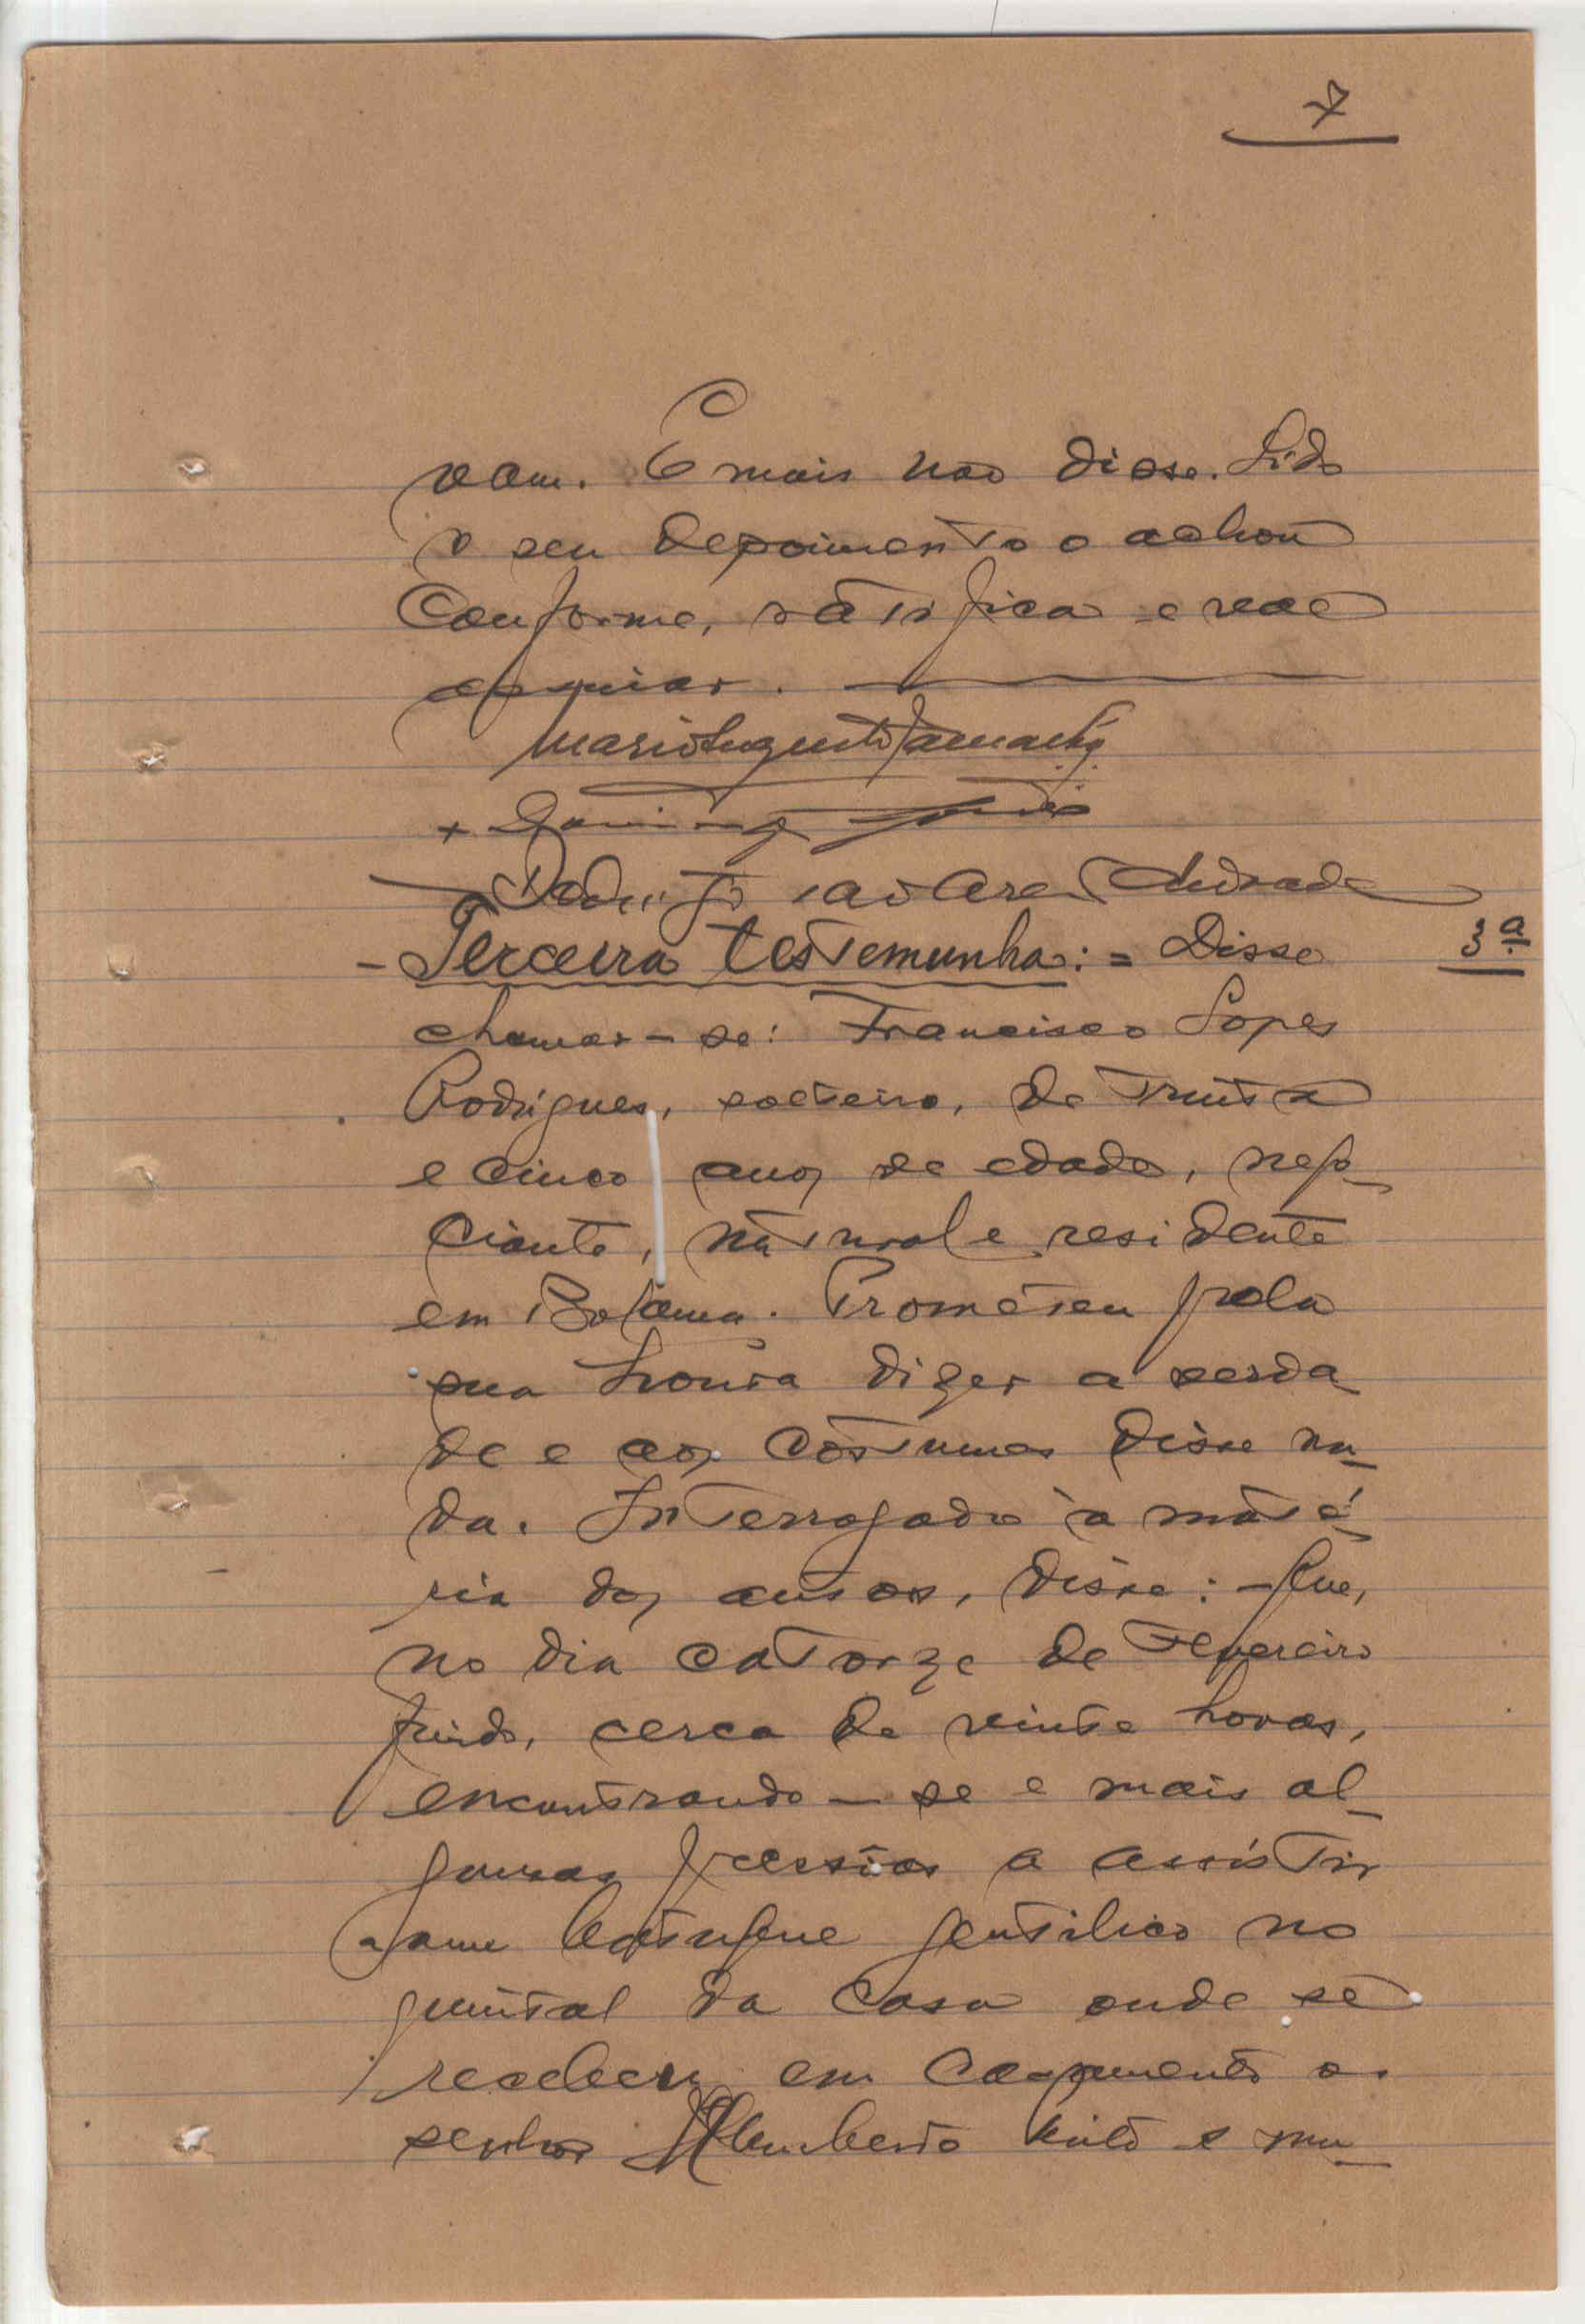 7
vam. E mais não disse. Lido
o seu depoimento o achou
conforme, ratifica e vae
assinar.
Mario Augusto
+ Domingos
Andrade
- Terceira testemunha: = Disse
3ª
chamar-se: Francisco Lopes
Rodrigues, solteiro, de trinta
e cinco anos de edade, nego-
ciante, natural e residente
em Bolama. Prometeu pela
sua honra dizer a verda-
de e aos costumes disse na-
da. Interrogado à maté-
ria dos autos, disse: - Que,
no dia catorze de Fevereiro
findo, cerca de vinte horas,
encontrando-se e mais al-
gumas pessôas a assistir
a um batuque gentilico no
quintal da casa onde se
recebeu em casamento o
senhor Humberto Pinto e mu-